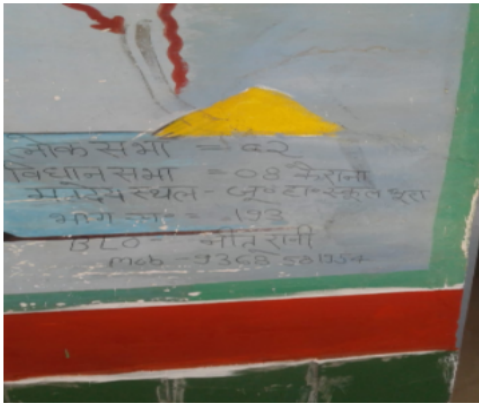 लोक सभा = 02
विधान सभा = 08 कैराना
मतदेय स्थल - जू० हा० स्कूल भूरा
भाग सं० = 193
BLO - नीतू रानी
Mob - 9368581954